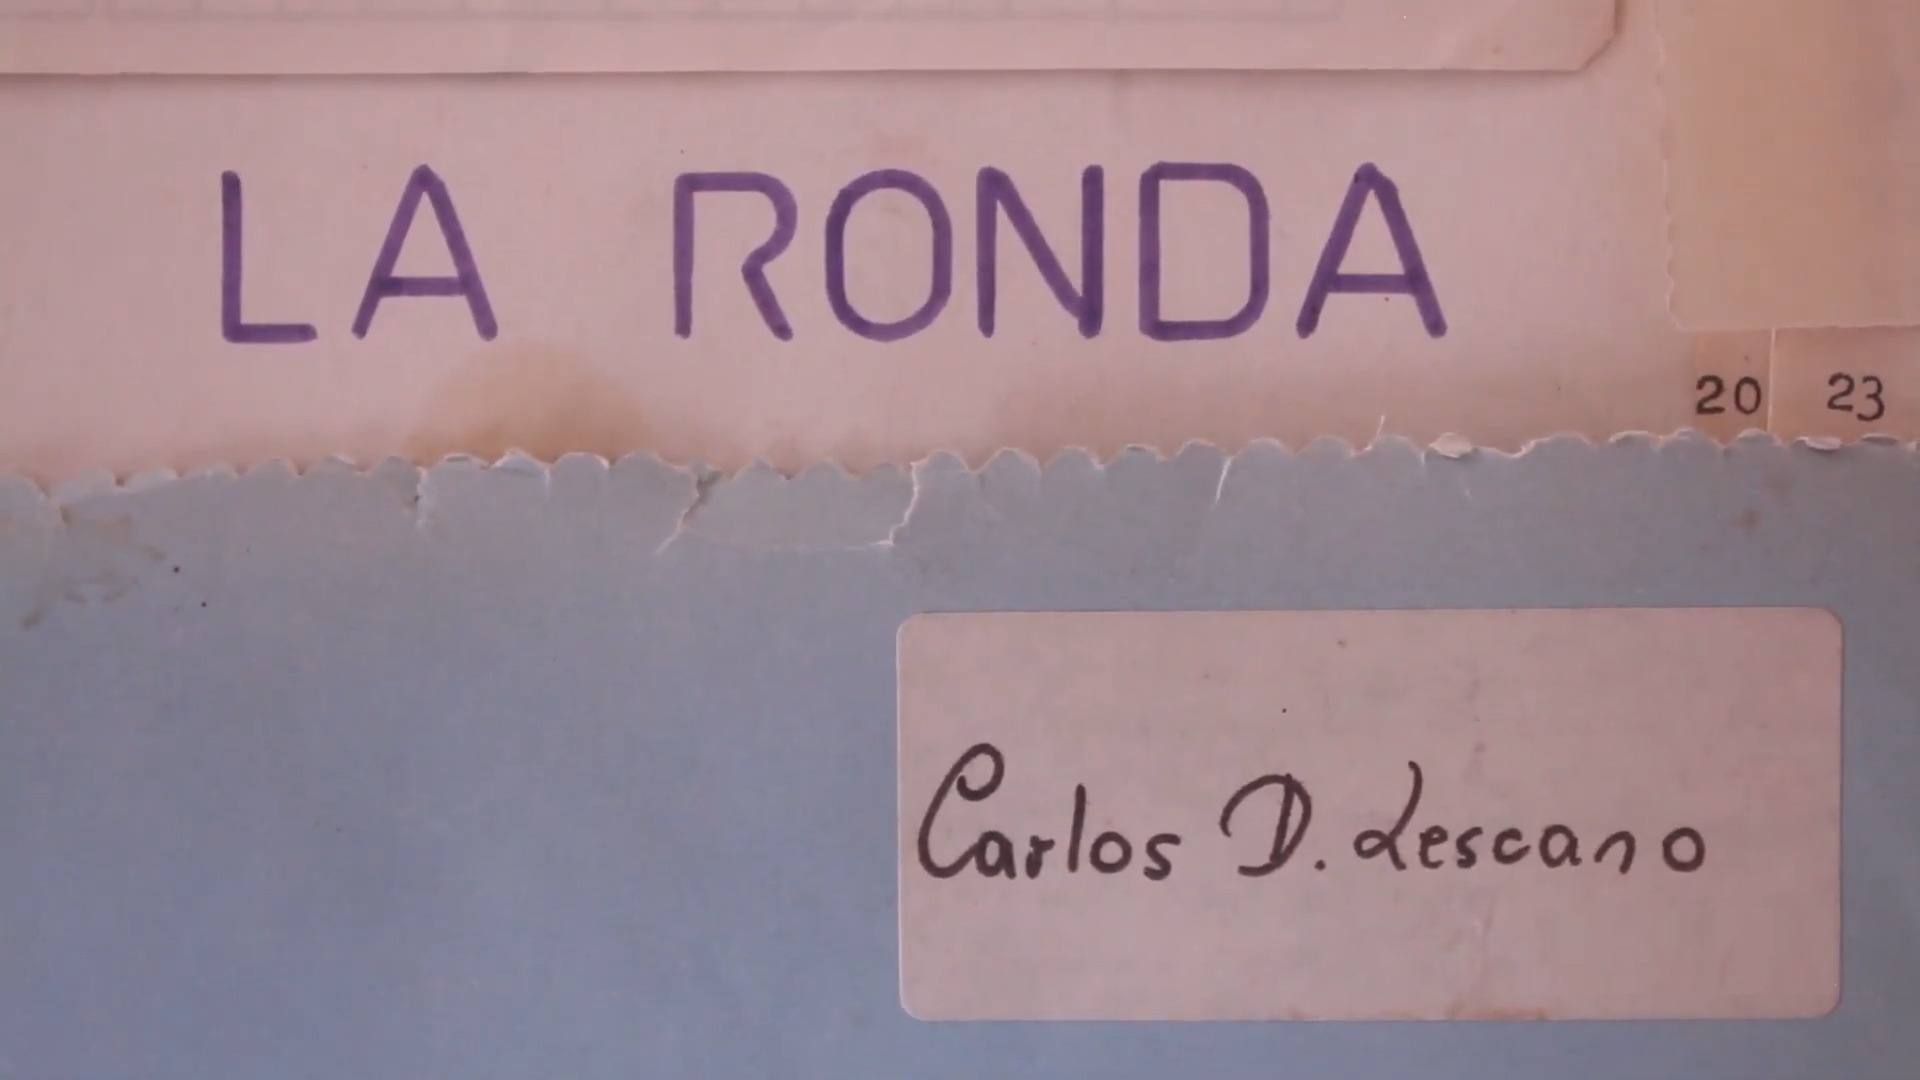 LA RONDA
20 23
Carlos D. Lescano